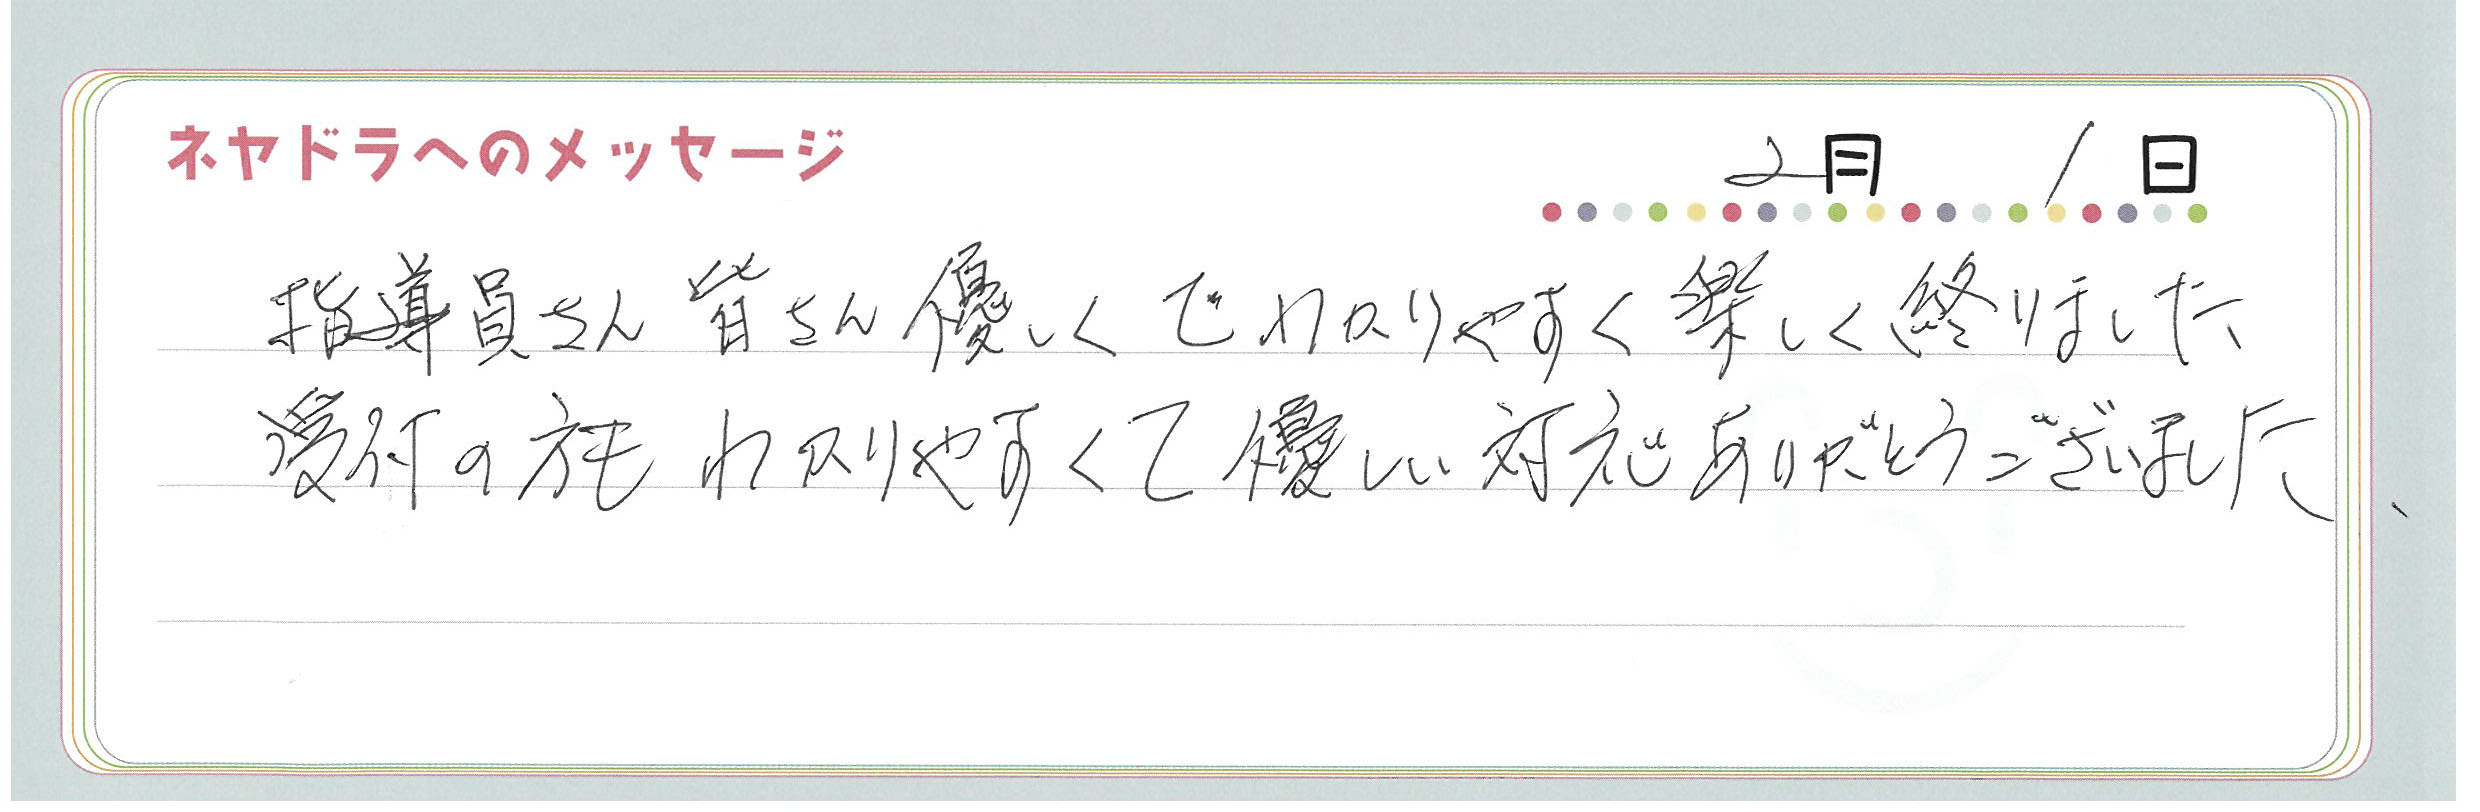 ネヤドラへのメッセージ
2月 1日
指導員さん皆さん優しくてわかりやすく楽しく終りました、
受付の方もわかりやすくて優しい対応ありがとうございました、